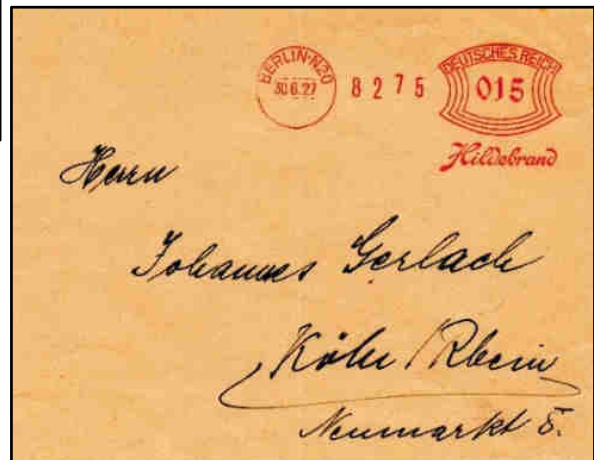 BERLIN·N20
30.6.27
8275
DEUTSCHES REICH
015
Hildebrand
Herrn
Johannes Gerlach
Köln / Rhein
Neumarkt